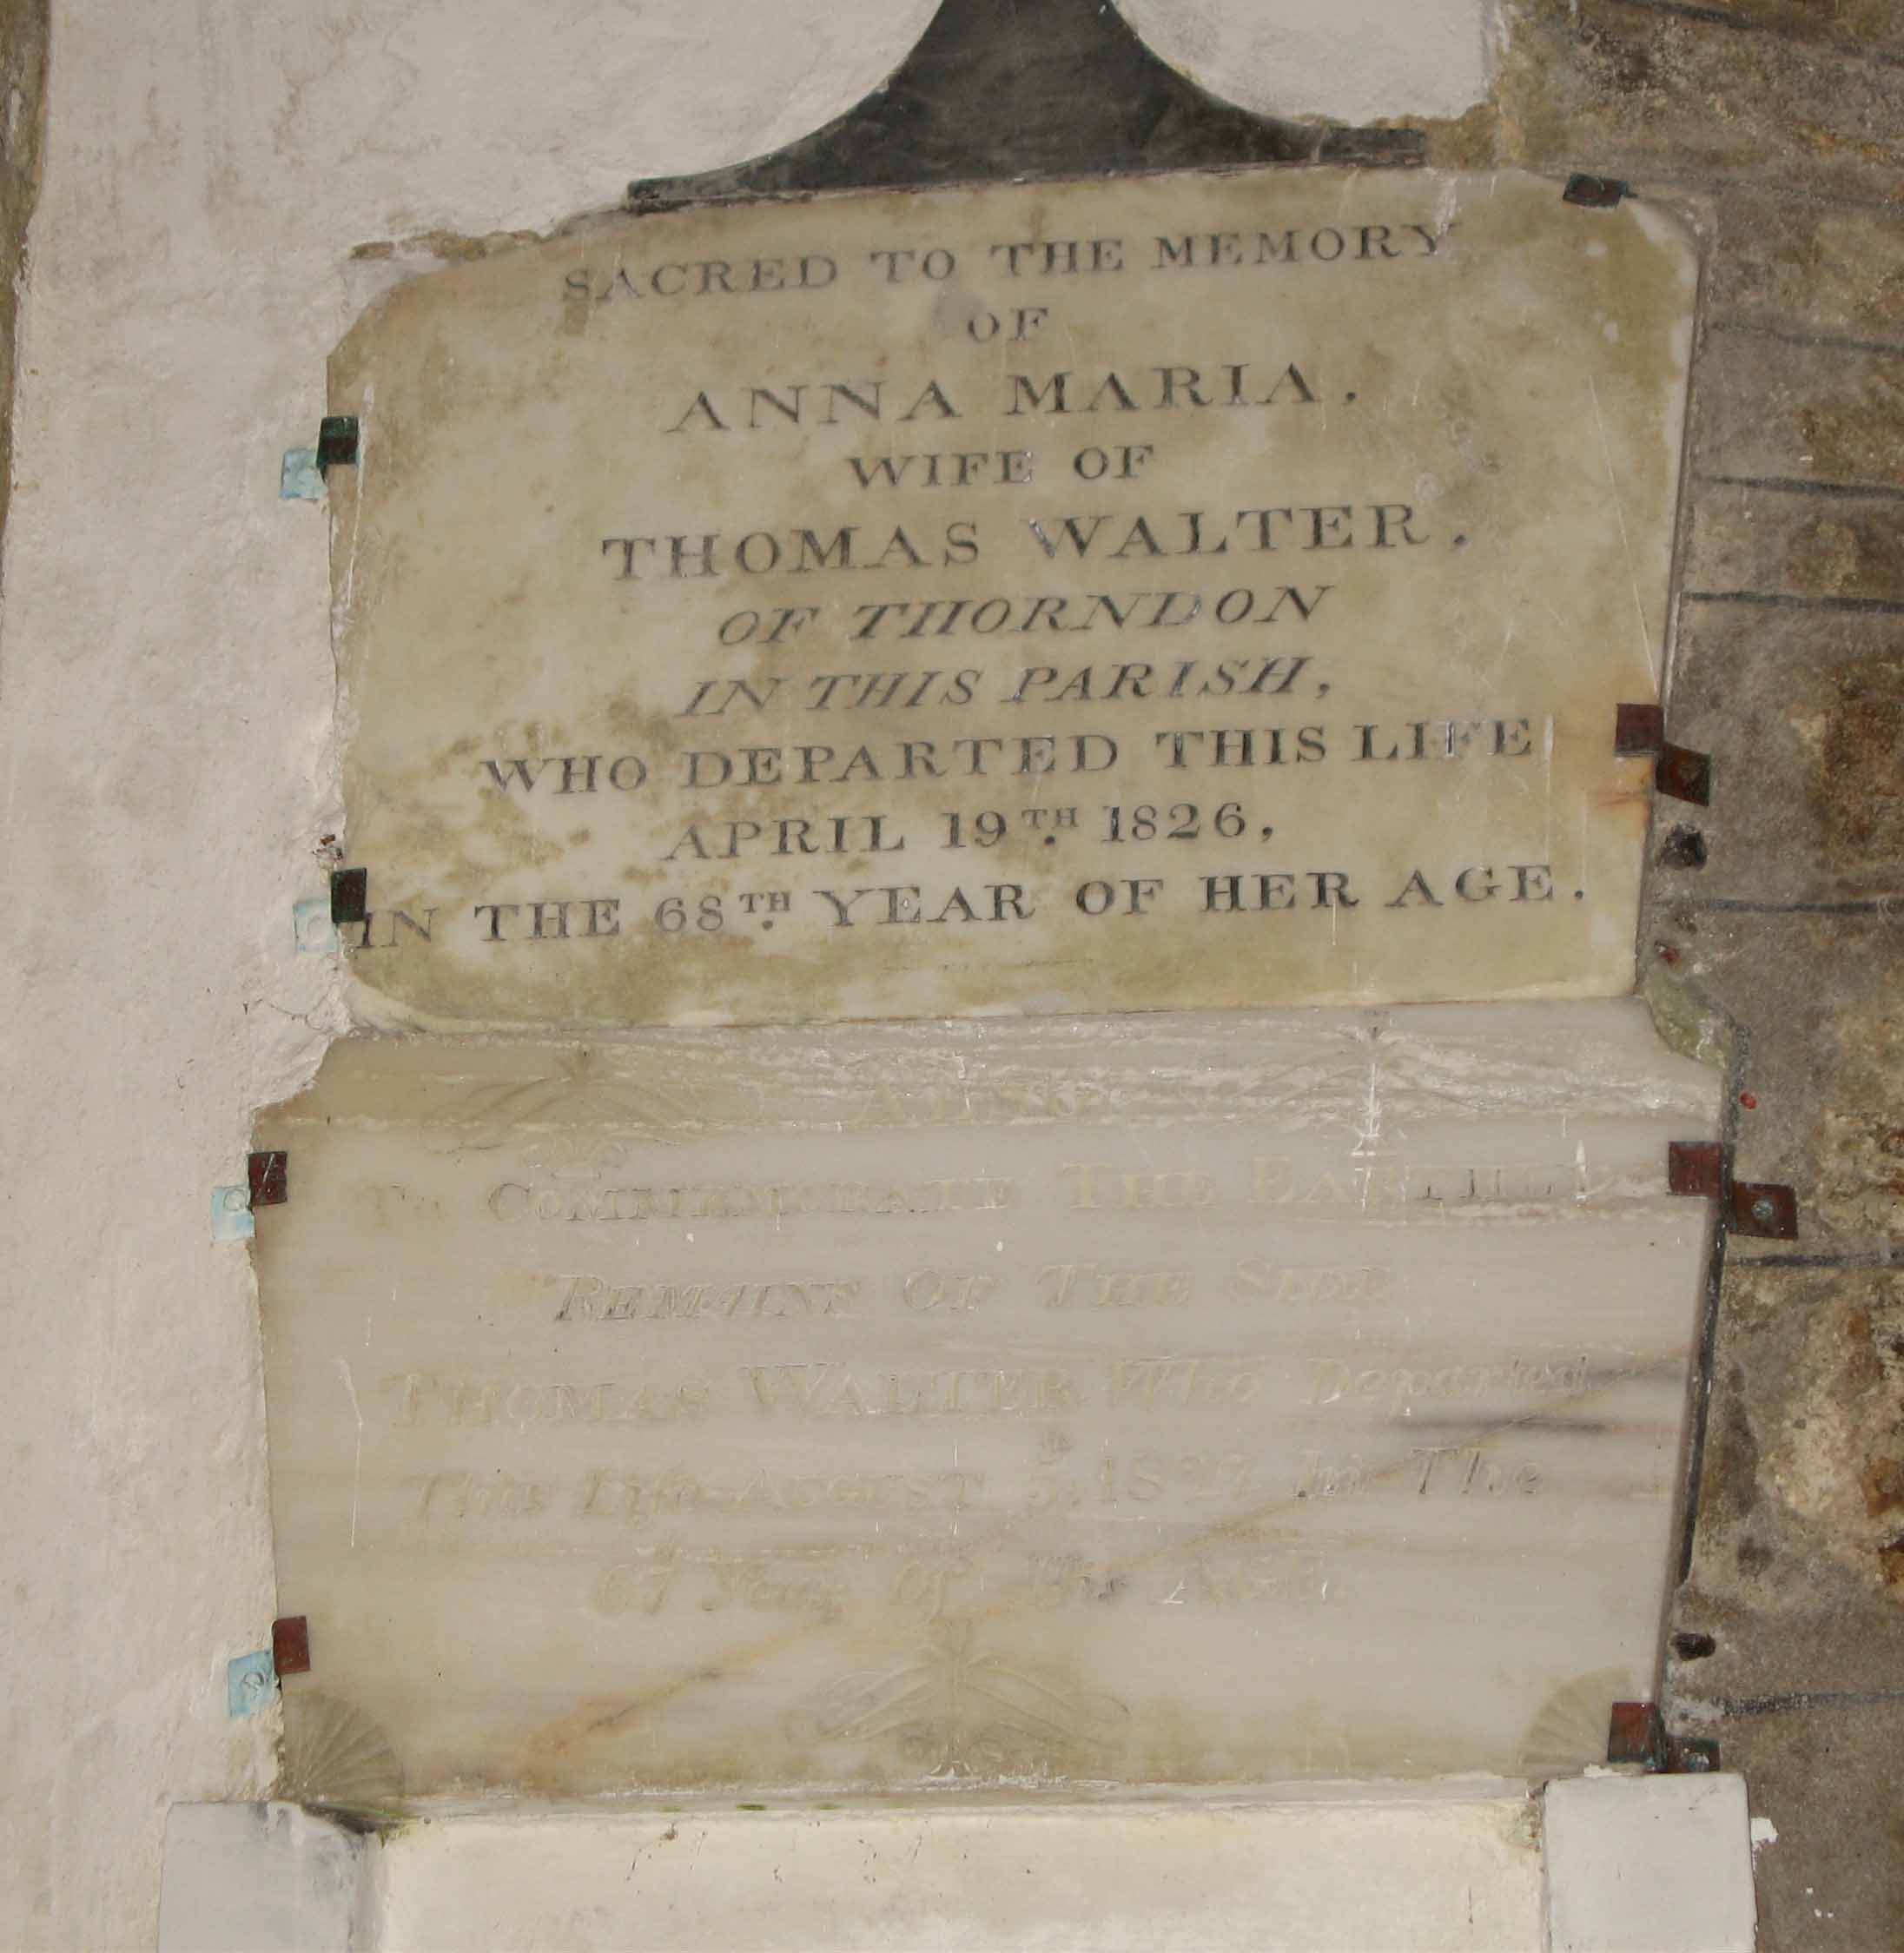 SACRED TO THE MEMORY
OF
ANNA MARIA.
WIFE OF
THOMAS WALTER.
OF THORNDON
IN THIS PARISH,
WHO DEPARTED THIS LIFE
APRIL 19TH. 1826,
IN THE 68TH. YEAR OF HER AGE.
ALSO
To COMMEMORATE THE EARTHLY
REMAINS OF THE SAID
THOMAS WALTER Who Departed
This Life AUGUST 1827 In The
67 Year Of His AGE